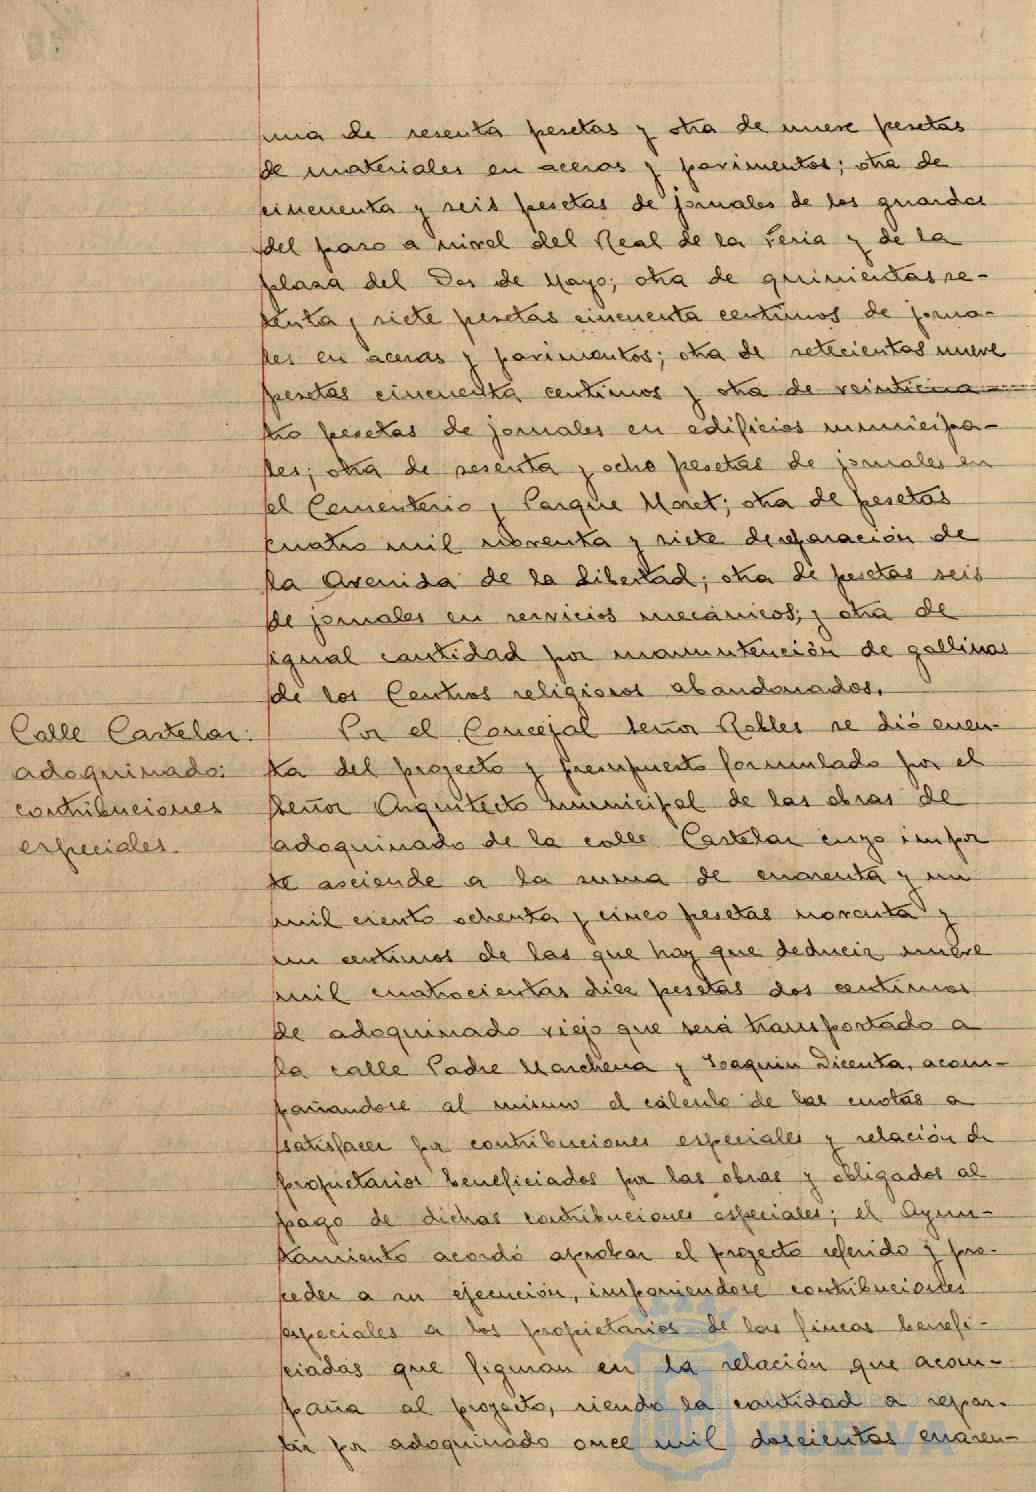 una de sesenta pesetas y otra de nueve pesetas
de materiales en aceras y pavimentos; otra de
cincuenta y seis pesetas de jornales de los guardas
del paso a nivel del Real de la Feria y de la
plaza del Dos de Mayo; otra de quinientas se-
tenta y siete pesetas cincuenta centimos de jorna-
les en aceras y pavimentos; otra de setecientas nueve
pesetas cincuenta centimos y otra de veinticua-
tro pesetas de jornales en edificios municipa-
les; otra de sesenta y ocho pesetas de jornales en
el Cementerio y Parque Moret; otra de pesetas
cuatro mil noventa y siete de reparación de
la Avenida de la Libertad; otra de pesetas seis
de jornales en servicios mecánicos; y otra de
igual cantidad por manutención de gallinas
de los Centros religiosos abandonados.
Calle Castelar:
adoquinado:
contribuciones
especiales.
Por el Concejal señor Robles se dió cuen-
ta del proyecto y presupuesto formulado por el
señor Arquitecto municipal de las obras de
adoquinado de la calle Castelar cuyo impor
te asciende a la suma de cuarenta y un
mil ciento ochenta y cinco pesetas noventa y
un centimos de las que hay que deducir nueve
mil cuatrocientas diez pesetas dos centimos
de adoquinado viejo que será transportado a
la calle Padre Marchena y Joaquin Dicenta, acom-
pañandose al mismo el cálculo de las cuotas a
satisfacer por contribuciones especiales y relación de
propietarios beneficiados por las obras y obligados al
pago de dichas contribuciones especiales; el Ayun-
tamiento acordó aprobar el proyecto referido y pro-
ceder a su ejecución, imponiendose contribuciones
especiales a los propietarios de las fincas benefi-
ciadas que figuran en la relación que acom-
paña al proyecto, siendo la cantidad a repar-
tir por adoquinado once mil doscientas cuaren-
Ayuntamiento de
HUELVA